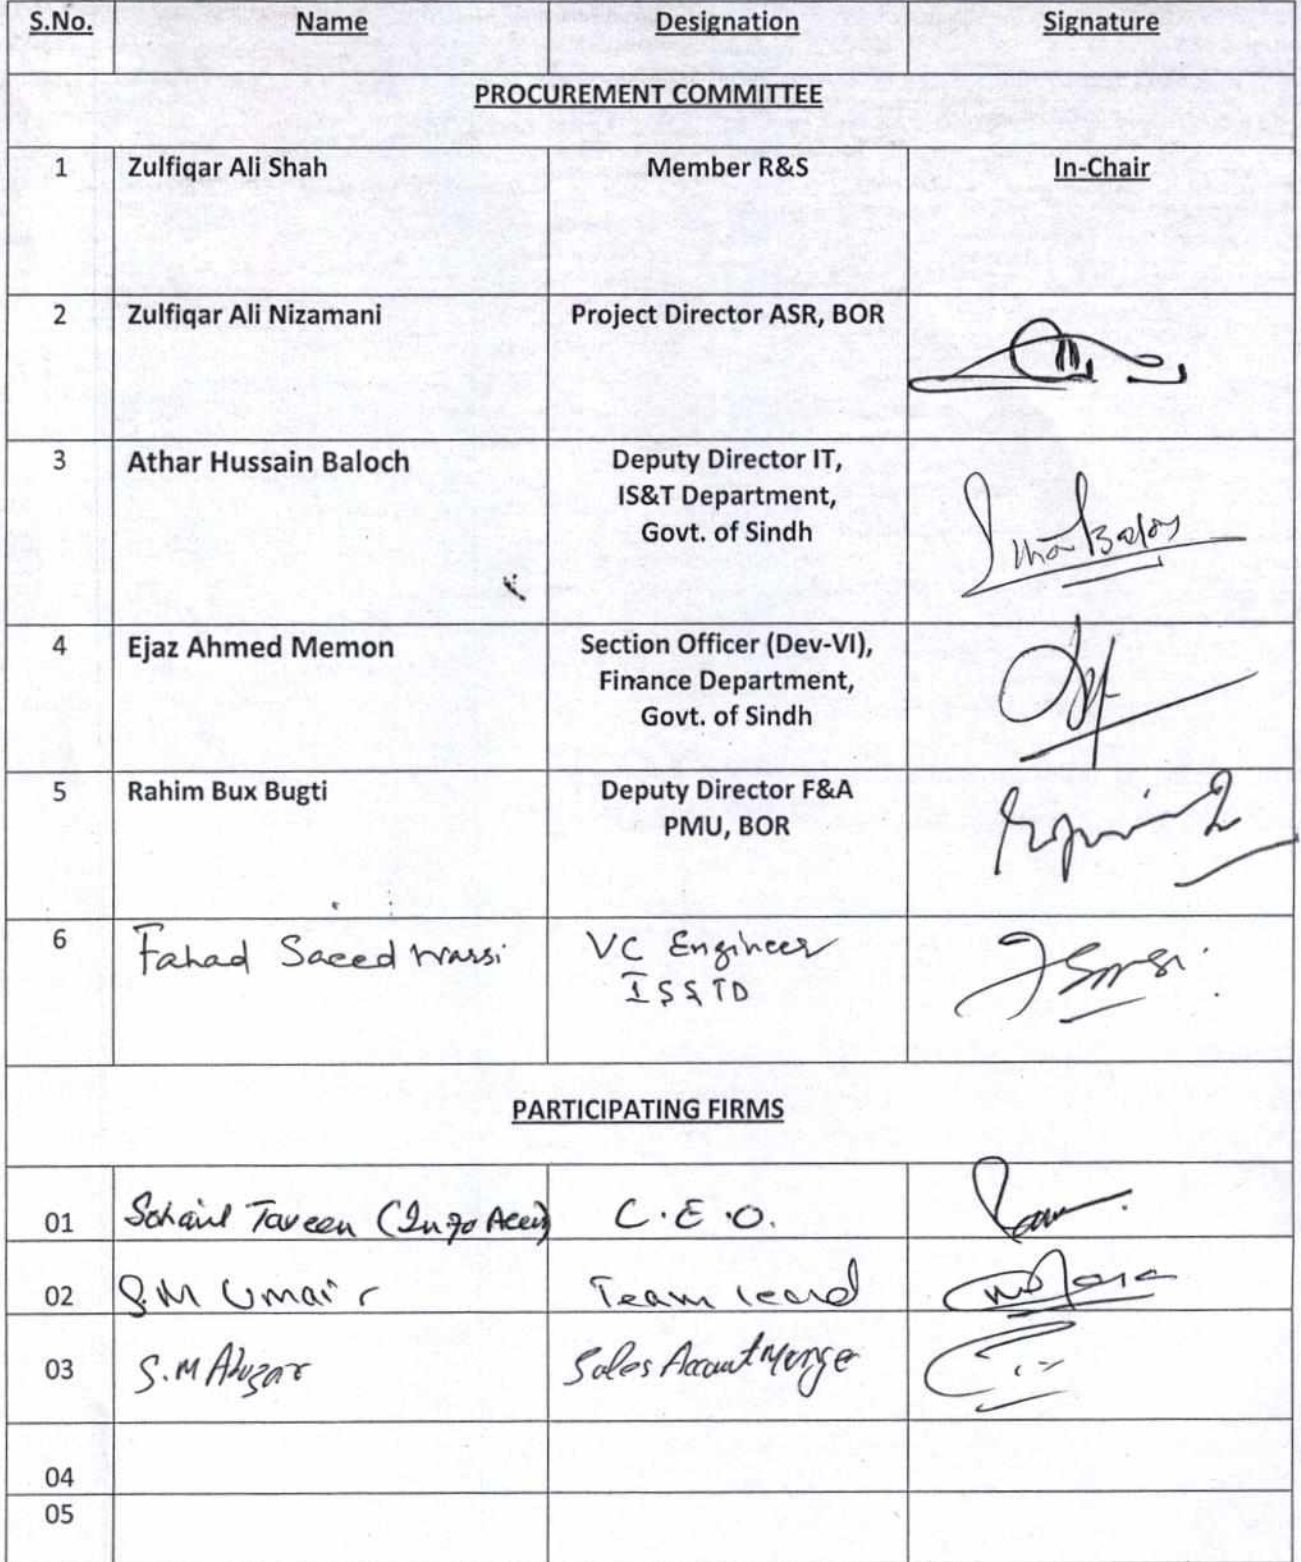 S.No. Name Designation Signature
PROCUREMENT COMMITTEE
1 Zulfiqar Ali Shah Member R&S In-Chair
2 Zulfiqar Ali Nizamani Project Director ASR, BOR
3 Athar Hussain Baloch Deputy Director IT,
IS&T Department,
Govt. of Sindh
4 Ejaz Ahmed Memon Section Officer (Dev-VI),
Finance Department,
Govt. of Sindh
5 Rahim Bux Bugti Deputy Director F&A
PMU, BOR
6 Fahad Saeed VC Engineer
PARTICIPATING FIRMS
01 Sohail Tareen C.E.O.
02 S.M Umair Team lead
03 S.M Abuzar Sales Account
04
05